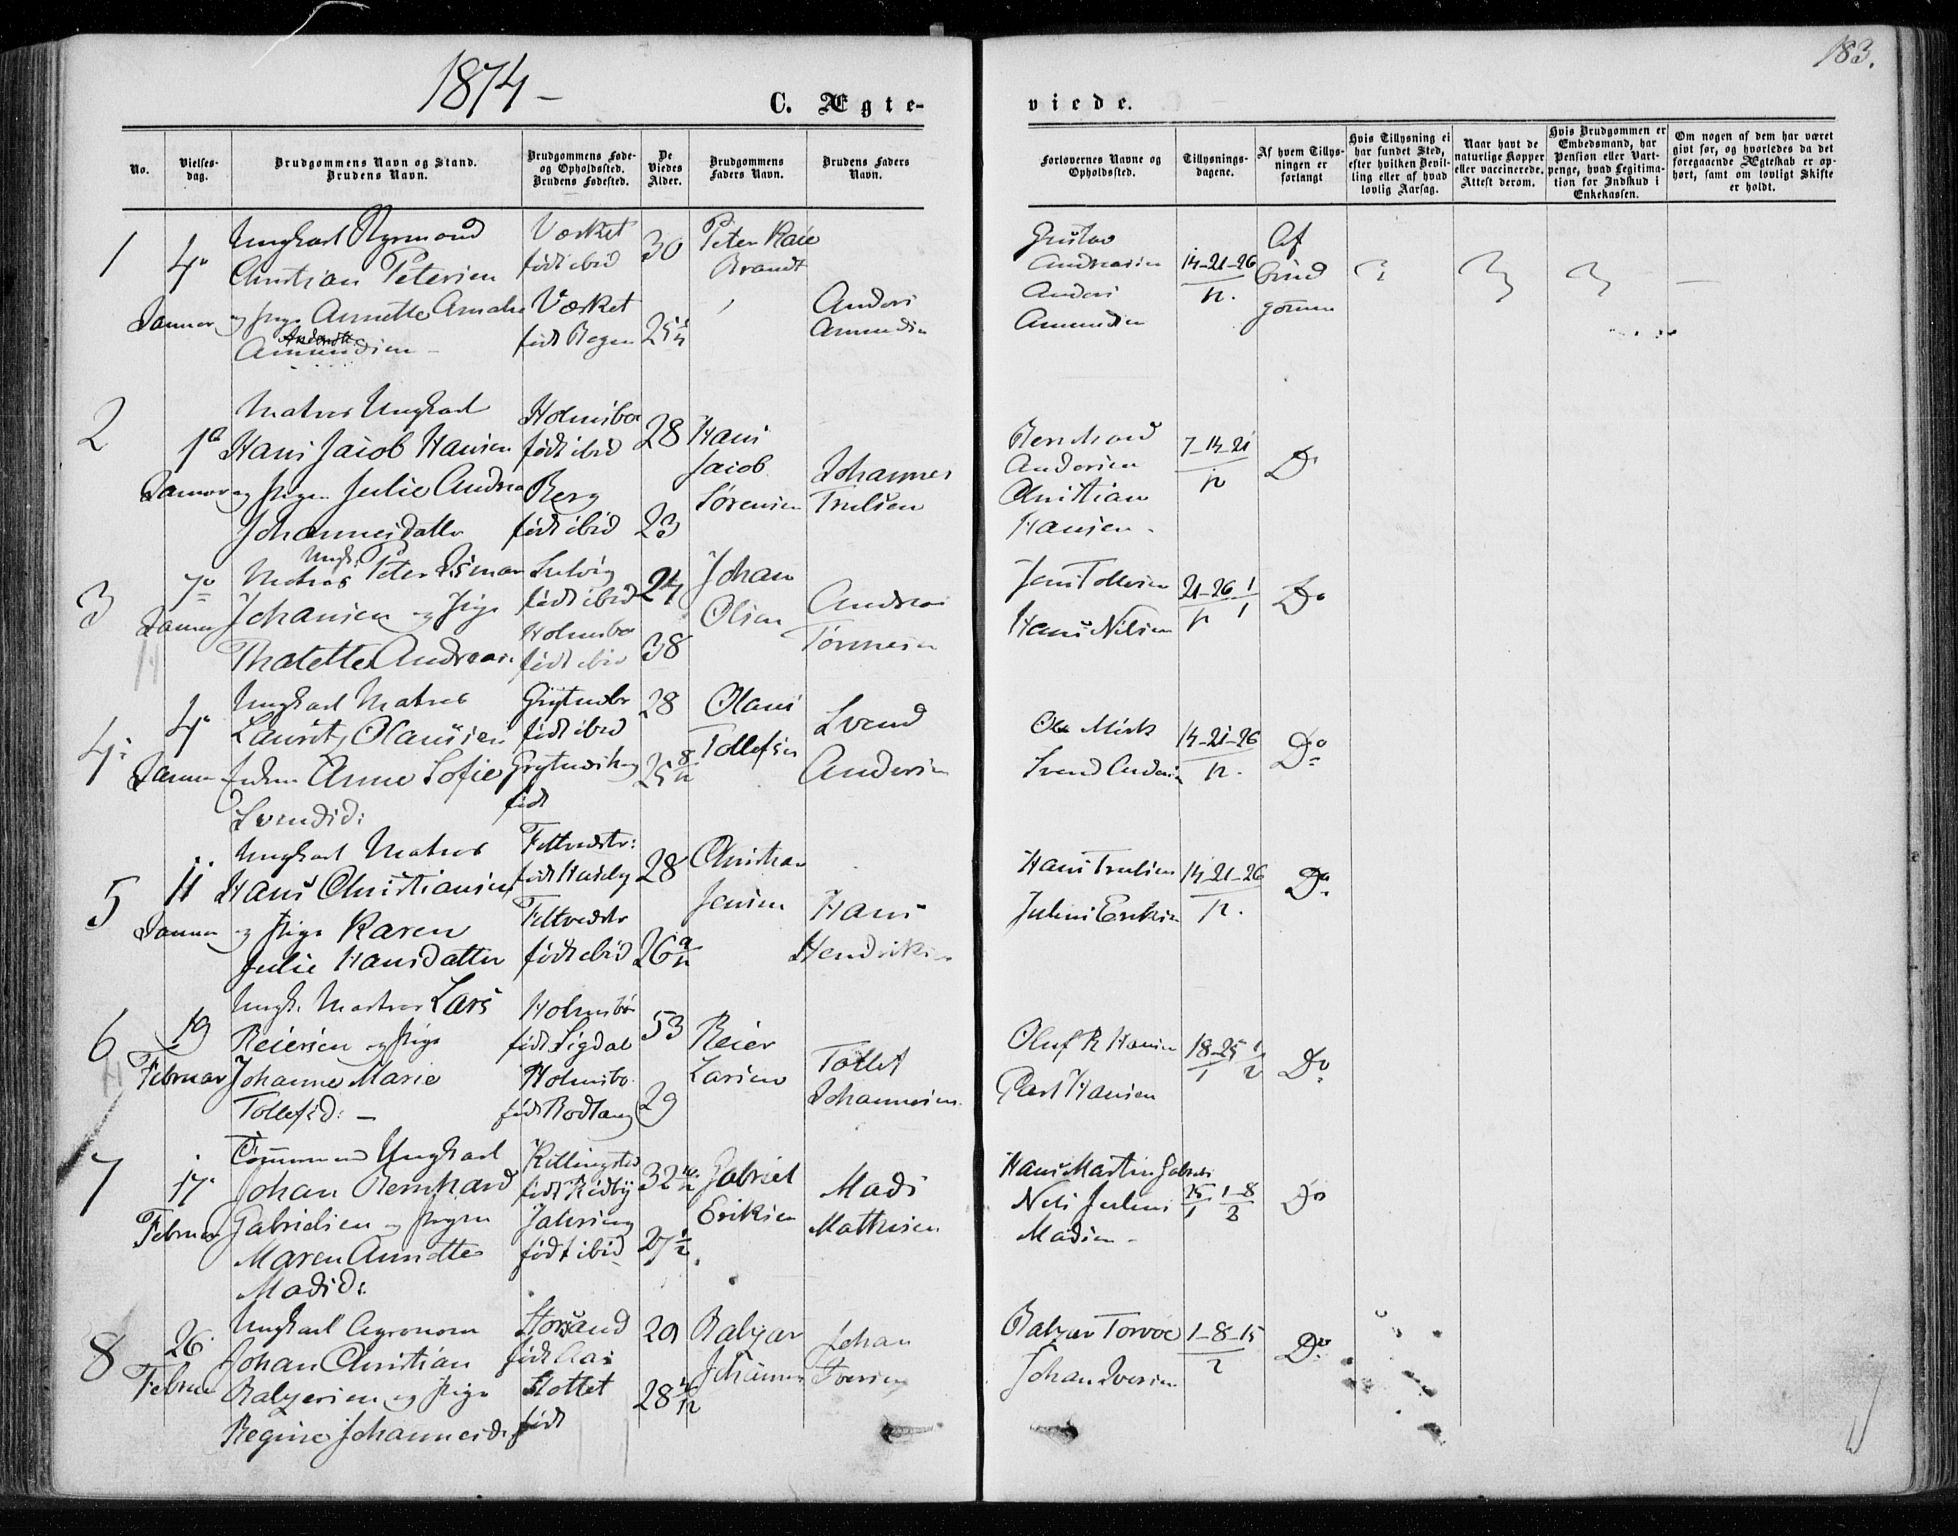 183.
1874 –
C. Ægte-
viede.
No.
Vielses-
dag.
Brudgommens Navn og Stand.
Brudens Navn.
Brudgommens Føde-
og Opholdssted.
Brudens Fødested.
De
Viedes
Alder.
Brudgommens
Faders Navn.
Brudens Faders
Navn.
Forlovernes Navne og
Opholdssted.
Tillysnings-
dagene.
Af hvem Tillys-
ningen er
forlangt
Hvis Tillysning ei
har fundet Sted,
efter hvilken Bevil-
ling eller af hvad
lovlig Aarsag.
Naar havt de
naturlige Kopper
eller vaccinerede.
Attest derom.
Hvis Brudgommen er
Embedsmand, har
Pension eller Vart-
penge, hvad Legitima-
tion for Indskud i
Enkekassen.
Om nogen af dem har været
givt før, og hvorledes da det
foregaaende Ægteskab er op-
hørt, samt om lovligt Skifte
er holdt.
1
4
Januar
Ungkarl
Christian Petersen
og Pige Annette
Amundsen –
Værket
født ibid
Værket
født
30
25
Peter
Brandt
Anders
Amundsen
Gustav
Andreasen
Anders
Amundsen
14–21–26
12.
Af
Brud
gommen
2
1
Januar
Matros Ungkarl
Hans Jacob Hansen
og Pigen Julie Andrea
Johannesdatter
Holmsbo
født ibid
Berg
født ibid
28
23
Hans
Jacob
Sørensen
Johannes
Trulsen
Bernhard
Andersen
Christian
Hansen
7–14–21
12
Do
3
7
Januar
Ungk.
Matros Peter
Johansen og Pige
Andreas.
Selvig
født ibid
Holmsbo
født ibid
24
38
Johan
Olsen
Andreas
Jens Tollesen
Hans Nilsen
21–26 1
12 1
Do
4
4
Januar
Ungkarl Matros
Lauritz Olausen
Anne Sofie
Svendsd:
født ibid
født
28
25 8/12
Olaus
Tollefsen
Svend
Andersen
Ole
Svend Andersen
14–21–26
12.
Do
5
11
Januar
Ungkarl Matros
Hans Christiansen
og Pige Karen
Julie Hansdatter
født
født ibid
28
26 9/12
Christian
Jensen
Hans
Hendriksen
Hans Trulsen
Julius Eriksen
14–21–26
12.
Do
6
19
Februar
Ungk. Matros Lars
Reiersen og Pige
Johanne Marie
Tollefsd: –
Holmsbo
født Sigdal
Holmsbo
født Rødtang
53
29
Reier
Larsen
Tollef
Johannesen
Oluf R Hansen
Carl Hansen
18–25 1
1 2
Do
7
17
Februar
Tømmermand Ungkarl
Johan Bernhard
Gabrielsen og Pigen
Maren Annette
Madsd:
født
født ibid
32
27
Gabriel
Eriksen
Mads
Mathisen
Hans Martin Gabriels
Nils Julius
Madsen –
25 1–8
1 2
Do
8
26
Februar
Ungkarl Agronom
Johan Christian
Balzersen og Pige
Regine Johannesd.
Storsand
født Aas
Slottet
født
29
28
Balzar
Johannes
Johan
Iversen
Balzar Torvøe
Johan Iversen
1–8–15
2
Do